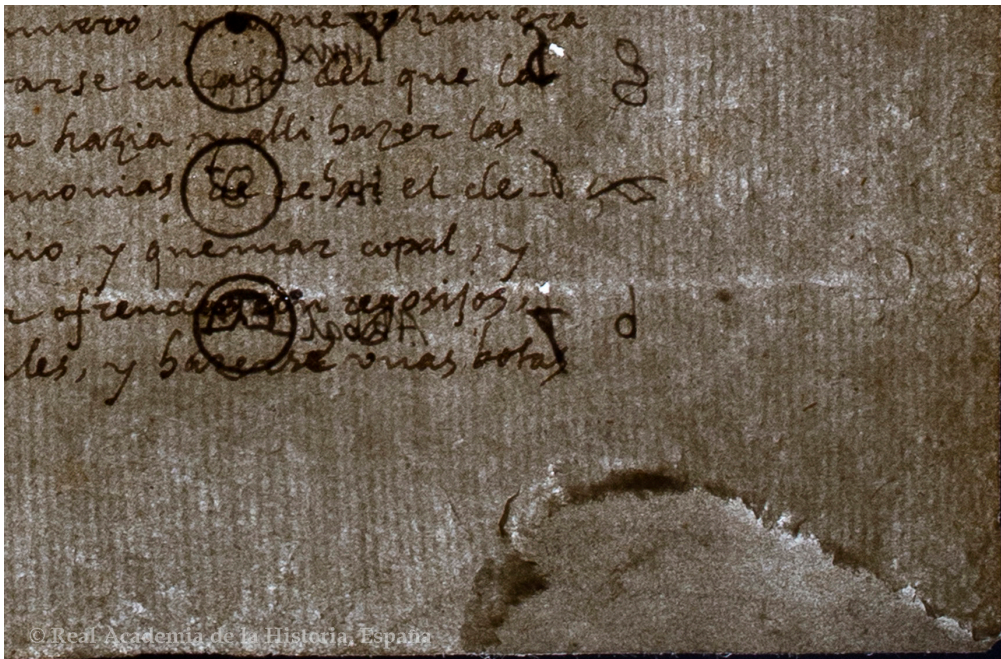 nuevo, y lo que hazian era
arse en casa del que la
a hazia y alli hazer las
monias de echar el de-
nio, y quemar copal, y
r ofrendas con regosijos,
les, y hazerse unas botas
© Real Academia de la Historia, España